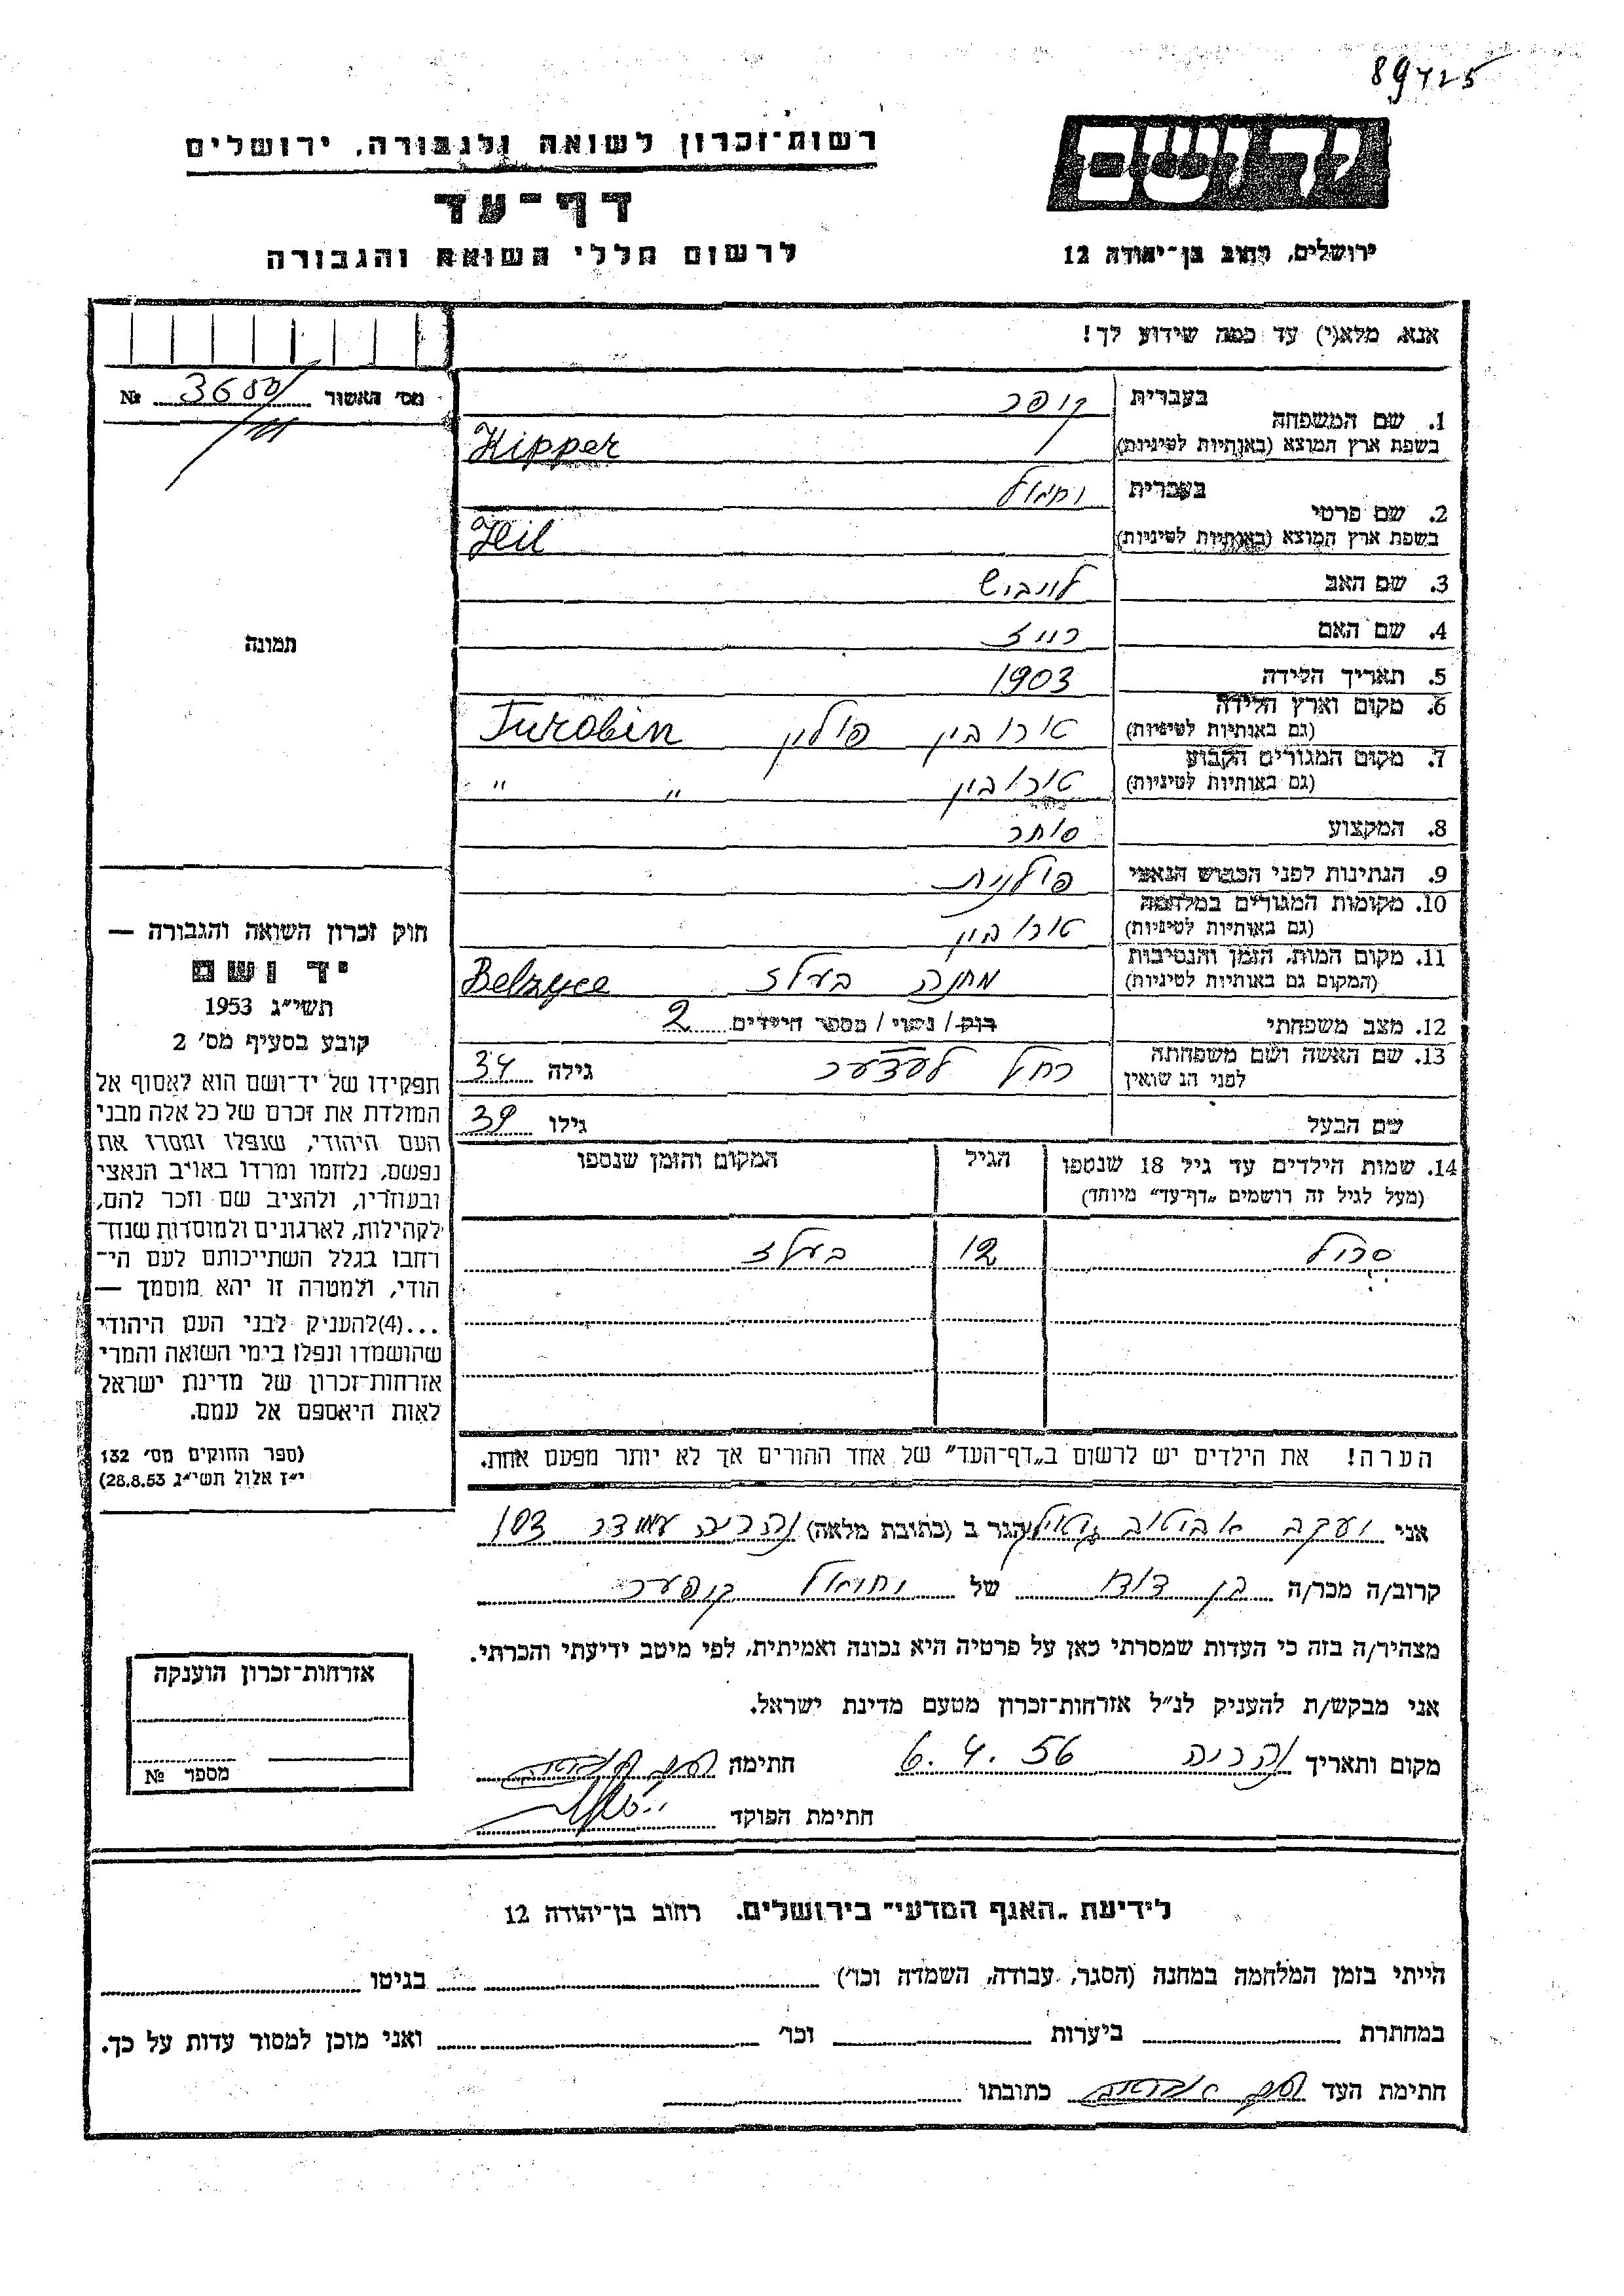 89425
רשות-זכרון לשואה ולגבורה, ירושלים
דף-עד
לרשום חללי השואה והגבורה
יד ושם
ירושלים, רחוב בן-יהודה 12
אנא, מלא(י) עד כמה שידוע לך!
מס' האשור № 3680
1. שם המשפחה בעברית קופר
בשפת ארץ המוצא (באותיות לטיניות) Kipper
2. שם פרטי בעברית יחיאל
בשפת ארץ המוצא (באותיות לטיניות) Hil
3. שם האב לייביש
4. שם האם
5. תאריך הלידה 1903
6. מקום וארץ הלידה (גם באותיות לטיניות) טורובין פולין Turobin
7. מקום המגורים הקבוע (גם באותיות לטיניות) טורובין " "
8. המקצוע סוחר
9. הנתינות לפני הכבוש הנאצי פולנית
10. מקומות המגורים במלחמה (גם באותיות לטיניות) טורובין
11. מקום המות, הזמן והנסיבות (המקום גם באותיות לטיניות) מחנה בעלז Belzyce
12. מצב משפחתי רוק/נשוי/מספר הילדים 2
13. שם האשה ושם משפחתה לפני הנשואין רחל לעצער גילה 34
שם הבעל גילו 39
14. שמות הילדים עד גיל 18 שנספו (מעל לגיל זה רושמים "דף-עד" מיוחד) הגיל המקום והזמן שנספו
סרול 12 בעלז
הערה! את הילדים יש לרשום ב"דף-העד" של אחד ההורים אך לא יותר מפעם אחת.
תמונה
חוק זכרון השואה והגבורה —
יד ושם
תשי"ג 1953
קובע בסעיף מס' 2
תפקידו של יד-ושם הוא לאסוף אל
המולדת את זכרם של כל אלה מבני
העם היהודי, שנפלו ומסרו את
נפשם, נלחמו ומרדו באויב הנאצי
ובעוזריו, ולהציב שם וזכר להם,
לקהילות, לארגונים ולמוסדות שנח-
רחבו בגלל השתייכותם לעם הי-
הודי, ולמטרה זו יהא מוסמך —
...(4)להעניק לבני העם היהודי
שהושמדו ונפלו בימי השואה והמרי
אזרחות-זכרון של מדינת ישראל
לאות היאספם אל עמם.
(ספר החוקים מס' 132
י"ז אלול תשי"ג 28.8.53)
אני יעקב אביטוב הגר ב (כתובת מלאה) נהריה עמידר 103
קרוב/ה מכר/ה בן דודו של יחיאל קופער
מצהיר/ה בזה כי העדות שמסרתי כאן על פרטיה היא נכונה ואמיתית, לפי מיטב ידיעתי והכרתי.
אני מבקש/ת להעניק לנ"ל אזרחות-זכרון מטעם מדינת ישראל.
מקום ותאריך נהריה 6.4.56 חתימה
חתימת הפוקד
אזרחות-זכרון הוענקה
מספר №
לידיעת "האגף המדעי" בירושלים. רחוב בן-יהודה 12
הייתי בזמן המלחמה במחנה (הסגר, עבודה, השמדה וכו') בגיטו
במחתרת ביערות וכו' ואני מוכן למסור עדות על כך.
חתימת העד כתובתו